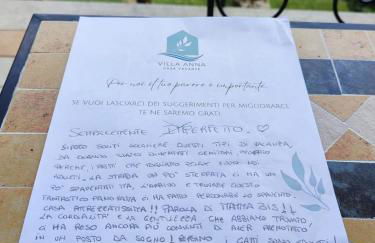 VILLA ANNA
CASA VACANZE
Per noi il tuo parere è importante.
SE VUOI LASCIARCI DEI SUGGERIMENTI PER MIGLIORARCI
TE NE SAREMO GRATI.
SEMPLICEMENTE PERFETTO.
SIAMO SOLITI SCEGLIERE QUESTI TIPI DI VACANZA,
DA QUANDO SIAMO DIVENTATI GENITORI, PROPRIO
PERCHÉ, I POSTI CHE
ADULTI. LA STRADA UN PO' STERRATA CI HA UN
PO' SPAVENTATI MA, L'ARRIVO E TROVARE QUESTO
FANTASTICO CI HA FATTO PERDONARE LO SPAVENTO.
CASA ATTREZZATISSIMA!! PAROLA DI
LA CORDIALITÀ E LA GENTILEZZA CHE ABBIAMO TROVATO,
CI HA RESO ANCORA PIÙ CONTENTI DI AVER PRENOTATO
IN UN POSTO DA SOGNO! I GATTI SONO